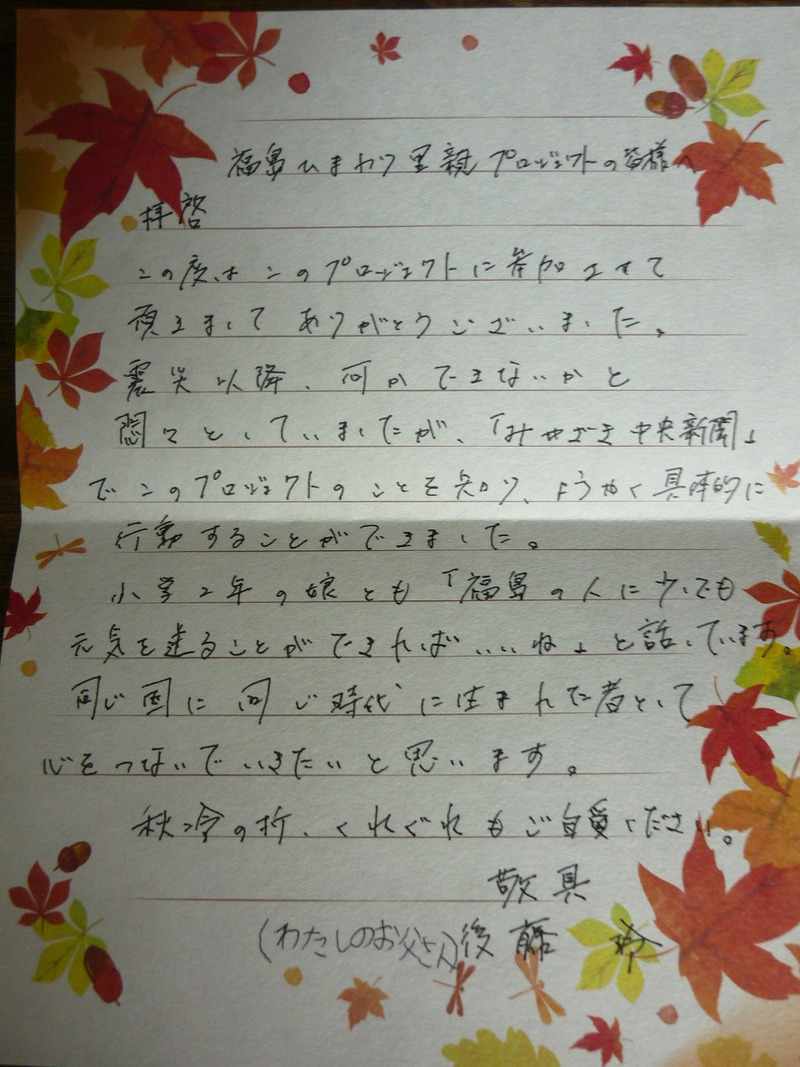 福島ひまわり里親プロジェクトの皆様へ
拝啓
この度は このプロジェクトに参加させて
頂きまして ありがとうございました。
震災以降、何かできないかと
悶々としていましたが、「みやざき中央新聞」
で このプロジェクトのことを知り、ようやく具体的に
行動することができました。
小学2年の娘とも「福島の人に少しでも
元気を送ることができればいいね」と話しています。
同じ国に同じ時代に生まれた者として
心をつないでいきたいと思います。
秋冷の折、くれぐれもご自愛ください。
敬具
(わたしのお父さん)後藤